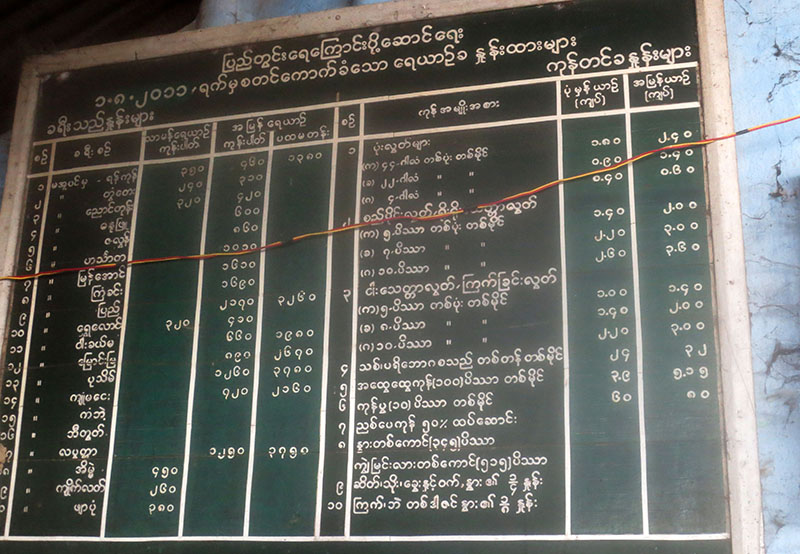 ပြည်တွင်းရေကြောင်းပို့ဆောင်ရေး
၁.၈.၂၀၁၁ ရက်မှစတင်ကောက်ခံသော ရေယာဉ်ခ နှုန်းထားများ
ခရီးသည်နှုန်းများ
ကုန်တင်ခနှုန်းများ
စဉ် ခရီးစဉ် သာမန်ရေယာဉ် ကုန်းပတ် အမြန်ရေယာဉ် ကုန်းပတ် ပထမတန်း
၁ မအူပင်မှ - ရန်ကုန် ၃၅၀ ၄၆၀ ၁၃၈၀
၂ " တွံတေး ၂၄၀ ၃၁၀
၃ " ညောင်တုန်း ၃၂၀ ၄၂၀
၄ " ဓနုဖြူ ၆၀၀
၅ " ဇလွန် ၈၆၀
၆ " ဟင်္သာတ ၁၀၁၀
၇ " မြန်အောင် ၁၆၁၀
၈ " ကြံခင်း ၁၆၉၀
၉ " ပြည် ၂၁၇၀ ၃၂၆၀
၁၀ " ရွှေလောင် ၃၂၀ ၄၁၀
၁၁ " ဝါးခယ်မ ၆၆၀ ၁၉၈၀
၁၂ " မြောင်းမြ ၈၉၀ ၂၆၇၀
၁၃ " ပုသိမ် ၁၂၆၀ ၃၇၈၀
၁၄ " ကျုံမငေး ၇၂၀ ၂၁၆၀
၁၅ " ကံဘဲ့
၁၆ " ဘီတွတ်
၇ " လပွတ္တာ ၁၂၅၀ ၃၇၅၀
၈ " အိမ်မဲ ၄၅၀
" ကျိုက်လတ် ၂၆၀
" ဖျာပုံ ၃၈၀
စဉ် ကုန်အမျိုးအစား ပုံမှန်ယာဉ် (ကျပ်) အမြန်ယာဉ် (ကျပ်)
၁ ပုံးလွတ်များ
(က) ၄၄-ဂါလံ တစ်ပုံး တစ်မိုင် ၁.၈၀ ၂.၄၀
(ခ) ၂၂-ဂါလံ " " ၀.၉၀ ၁.၄၀
(ဂ) ၄-ဂါလံ " " ၀.၄၀ ၀.၆၀
(က) ၅-ပိဿာ တစ်ပုံး တစ်မိုင် ၁.၄၀ ၂.၀၀
(ခ) ၇-ပိဿာ " " ၂.၂၀ ၃.၀၀
(ဂ) ၁၀-ပိဿာ " " ၂.၆၀ ၃.၆၀
၃ ငါးသေတ္တာလွတ်၊ ကြက်ခြင်းလွတ်
(က) ၅-ပိဿာ တစ်ပုံး တစ်မိုင် ၁.၀၀ ၁.၄၀
(ခ) ၈-ပိဿာ " " ၁.၄၀ ၂.၀၀
(ဂ) ၁၀-ပိဿာ " " ၂.၂၀ ၃.၀၀
၄ သစ်၊ ပရိဘောဂစသည် တစ်တန် တစ်မိုင် ၂၄ ၃၂
၅ အထွေထွေကုန် (၁၀၀) ပိဿာ တစ်မိုင် ၃.၉ ၅.၁၅
၆ ကုန်မွှ (၁၀) ပိဿာ တစ်မိုင် ၆၀ ၈၀
၇ ညစ်ပေကုန် ၅၀% ထပ်ဆောင်း
၈ နွားတစ်ကောင် (၃၄၅) ပိဿာ
ကျွဲ၊ မြင်း၊ လားတစ်ကောင် (၅၁၅) ပိဿာ
၉ ဆိတ်၊ သိုး၊ ခွေးနှင့်ဝက်၊ နွား၏ နှုန်း
၁၀ ကြက်၊ ဘဲ တစ်ဒါဇင် နွား၏ နှုန်း